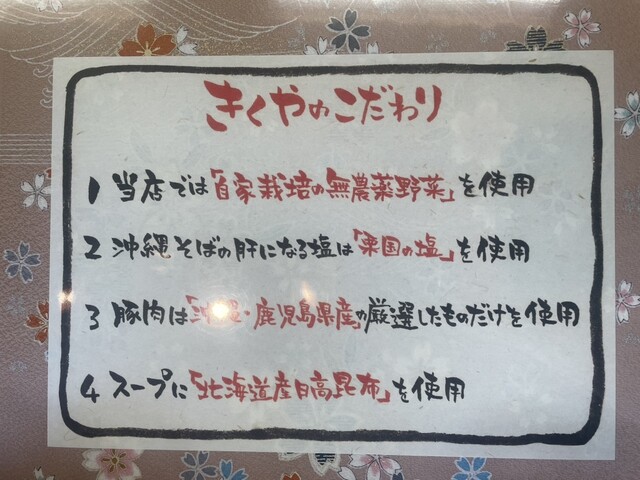 きくやのこだわり
1 当店では「自家栽培の無農薬野菜」を使用
2 沖縄そばの肝になる塩は「粟国の塩」を使用
3 豚肉は「沖縄・鹿児島県産」の厳選したものだけを使用
4 スープに「北海道産日高昆布」を使用